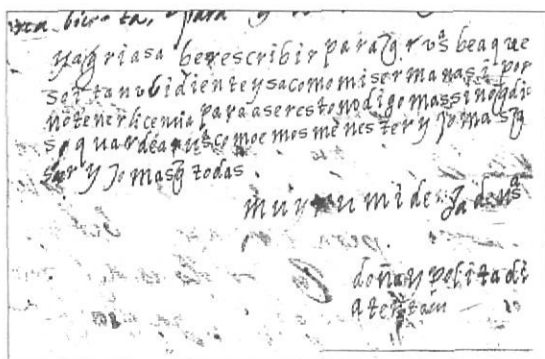 bierta, para y
yagriasa berescribir para q̃ rvs beaque
soi tan vbidiente y sa como mis ermanas i por
no tener licencia para aser esto no digo mas sino q̃ dios
guarde a vs como emos menester y yo mas q̃
y yo mas q̃ todas
muy umilde de vsª
doña ypolita di
atentam